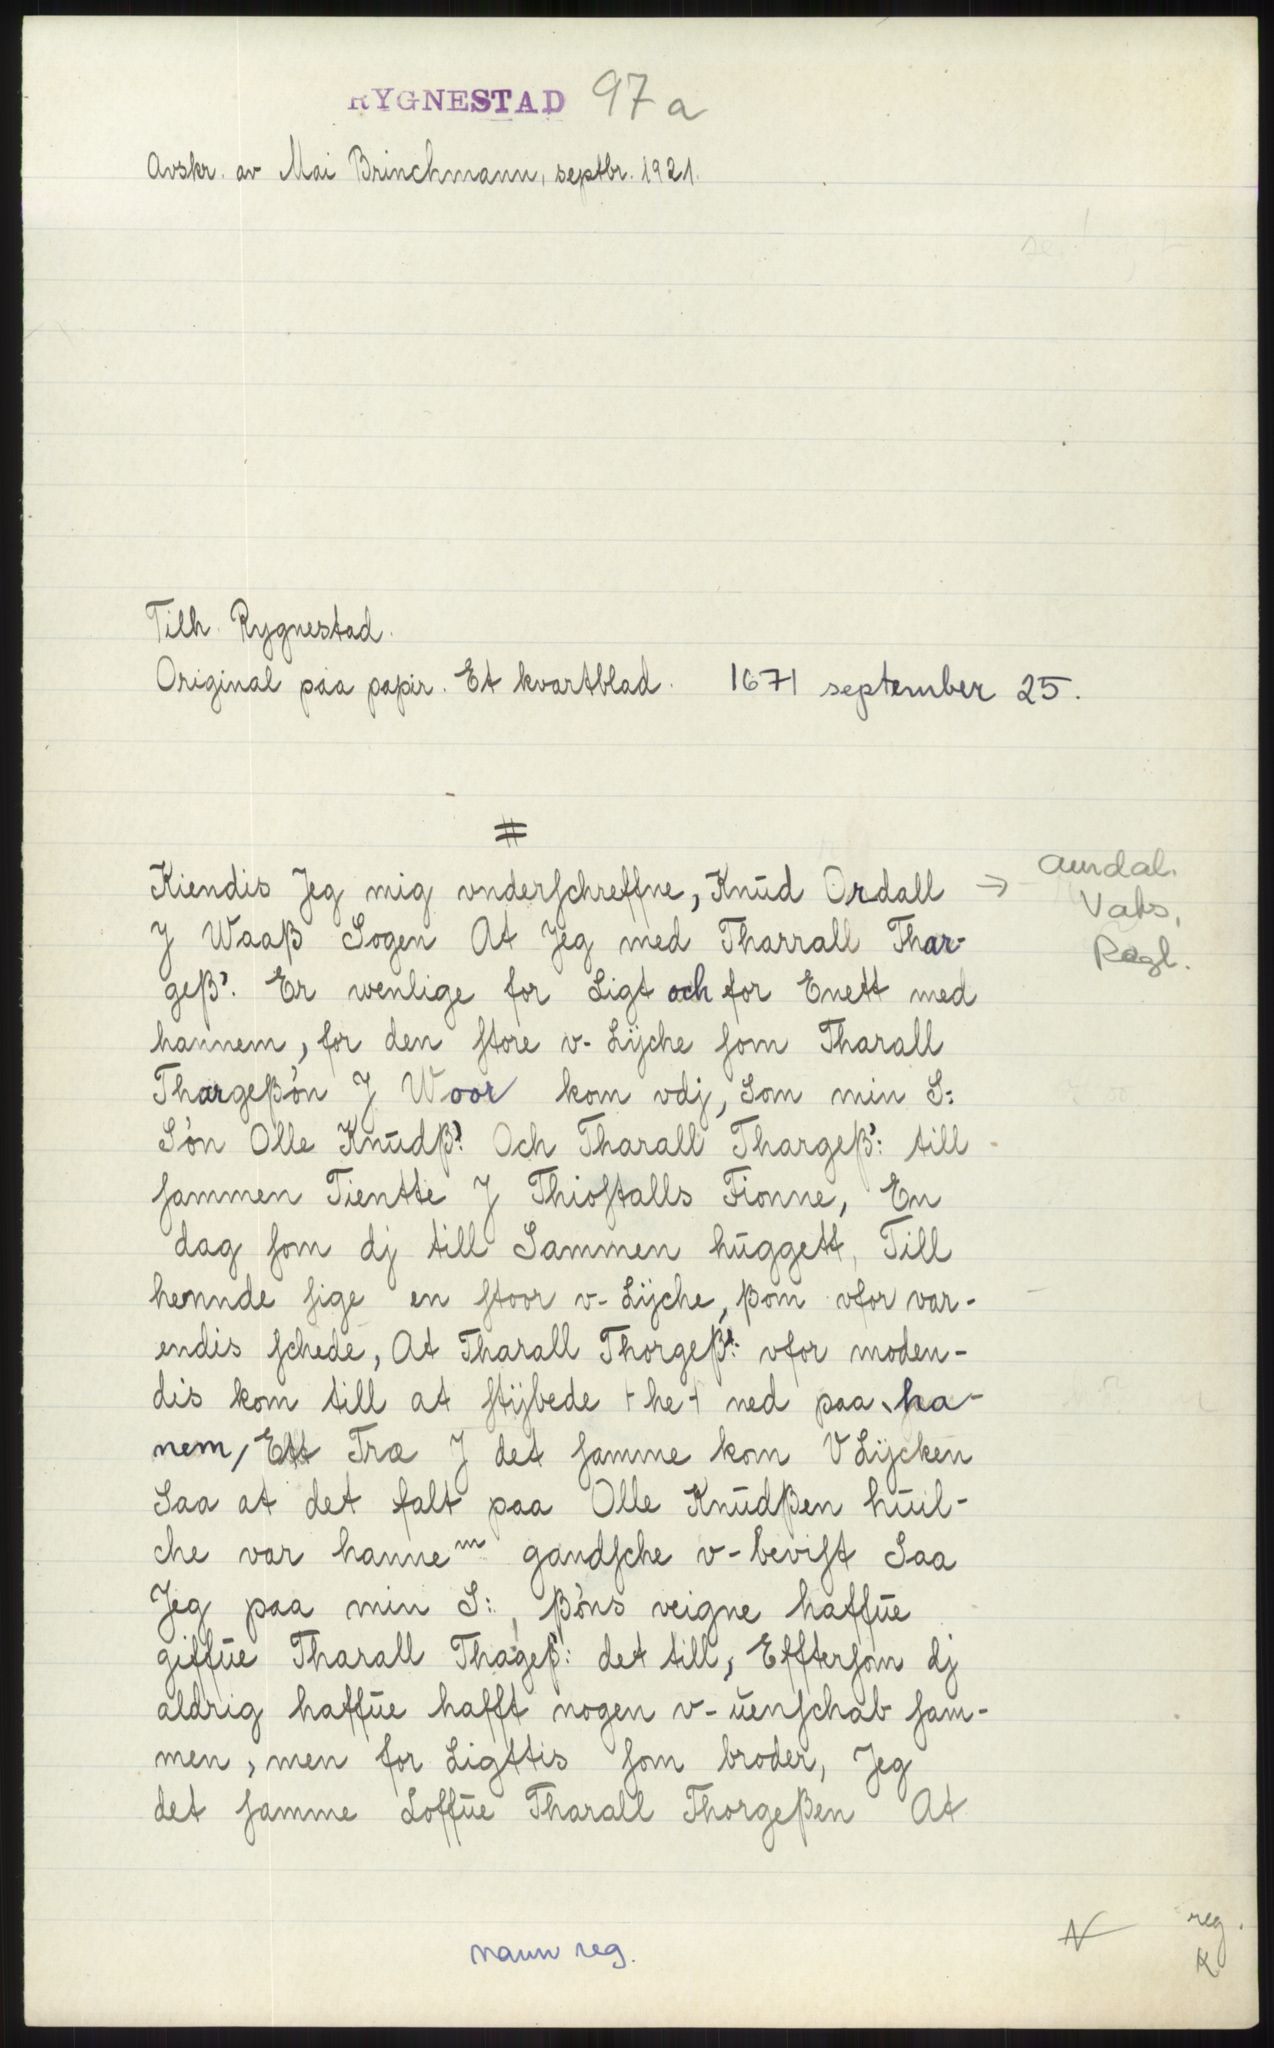 RYGNESTAD 97a
Avskr. av Mai Brinchmann, septbr. 1921.
Tilh. Rygnestad.
Original paa papir. Et kvartblad. 1671 september 25.
#
Kiendis Jeg mig vnderſchreffne, Knud Ordall → Aurdal.
J Waaß Sogen At Jeg med Tharrall Thar- Vaks,
geß'. Er wenlige for Ligt och for Enett med Rogl.
hannem, for den ſtore v-Lÿche ſom Tharall
Thargeßøn J Woor kom vdj, Som min S:
Søn Olle Knudß: Och Tharall Thargeß: till
ſammen Tientte J Thioſtalls Fionne, En
dag ſom dj till Sammen huggett, Till
hennde ſige en ſtoor v-Lÿche, ßom vfor var-
endis ſchede, At Tharall Thorgeß: vfor moden-
dis kom till at ſtÿbede ⊦he⊣ ned paa ha-
nem, Ett Træ J det ſamme kom VLÿcken
Saa at det falt paa Olle Knudßen huil-
che var hannem gandſche v-beviſt Saa
Jeg paa min S:, ßøns veigne haffue
giffue Tharall Thageß: det till, Effterſom dj
aldrig haffue hafft nogen v-uenſchab ſam-
men, men for Ligttis ſom broder, Jeg
det ſamme Loffue Tharall Thorgeßen At
navn reg.
N
reg.
K